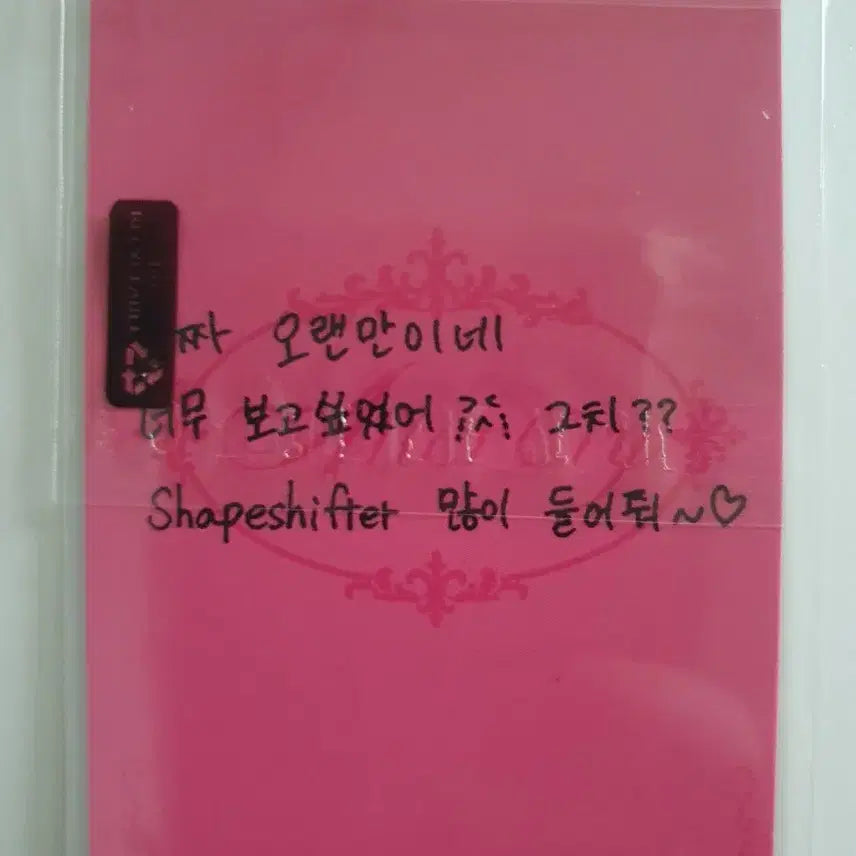 짜 오랜만이네
너무 보고싶었어 그치??
Shapeshifter 많이 들어줘~♡